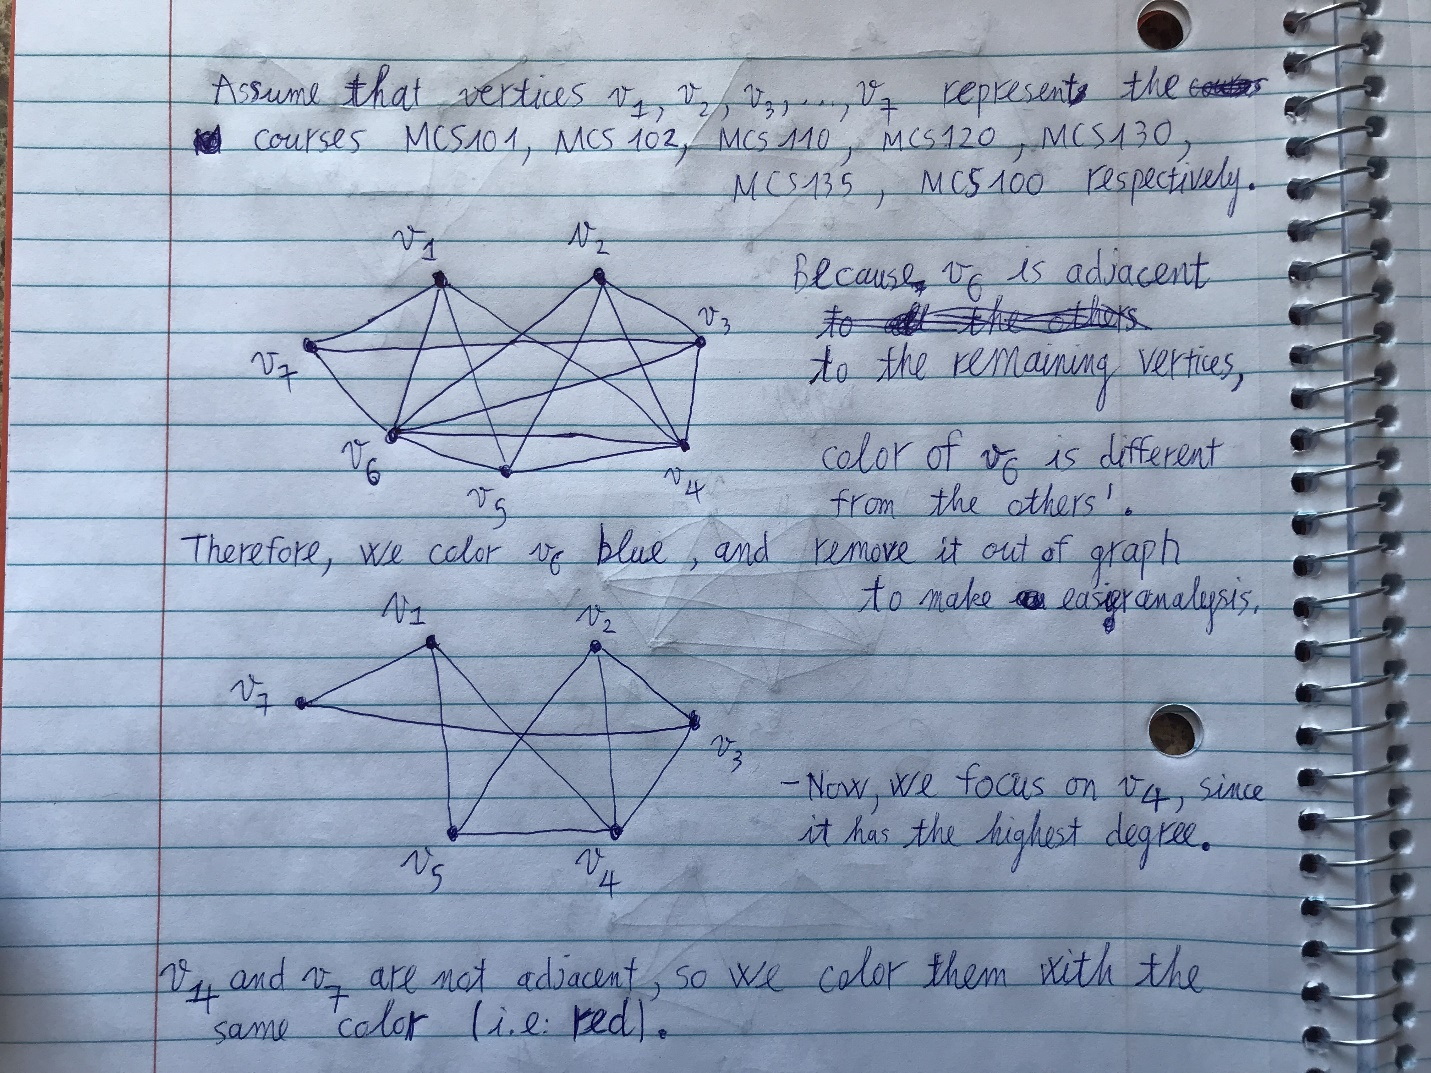 Assume that vertices v1, v2, v3, ..., v7 represents the
courses MCS101, MCS 102, MCS 110, MCS120, MCS130,
MCS135, MCS100 respectively.
v1 v2
v3
v7
v6
v5
v4
Because, v6 is adjacent
to all the others
to the remaining vertices,
color of v6 is different
from the others'.
Therefore, we color v6 blue, and remove it out of graph
to make easier analysis.
v1 v2
v7
v3
v5 v4
-Now, we focus on v4, since
it has the highest degree.
v4 and v7 are not adjacent, so we color them with the
same color (i.e: red).